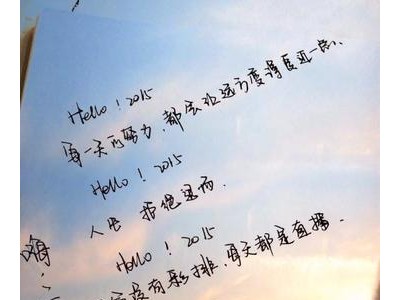 Hello! 2015
每一天的努力,都会让远方变得更近一点.
Hello! 2015
人生 拒绝退而.
Hello! 2015
没有彩排,每天都是直播.
嗨